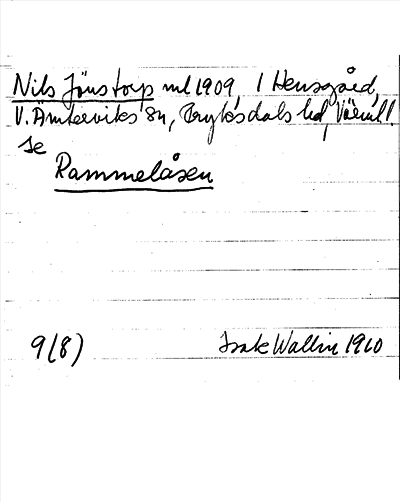 Nils Jönstorp ml 1909, 1 Hensgård,
V. Ämterviks sn, Fryksdals hd, Värml.
se
Rammelåsen
9(8)
Isak Wallin 1910